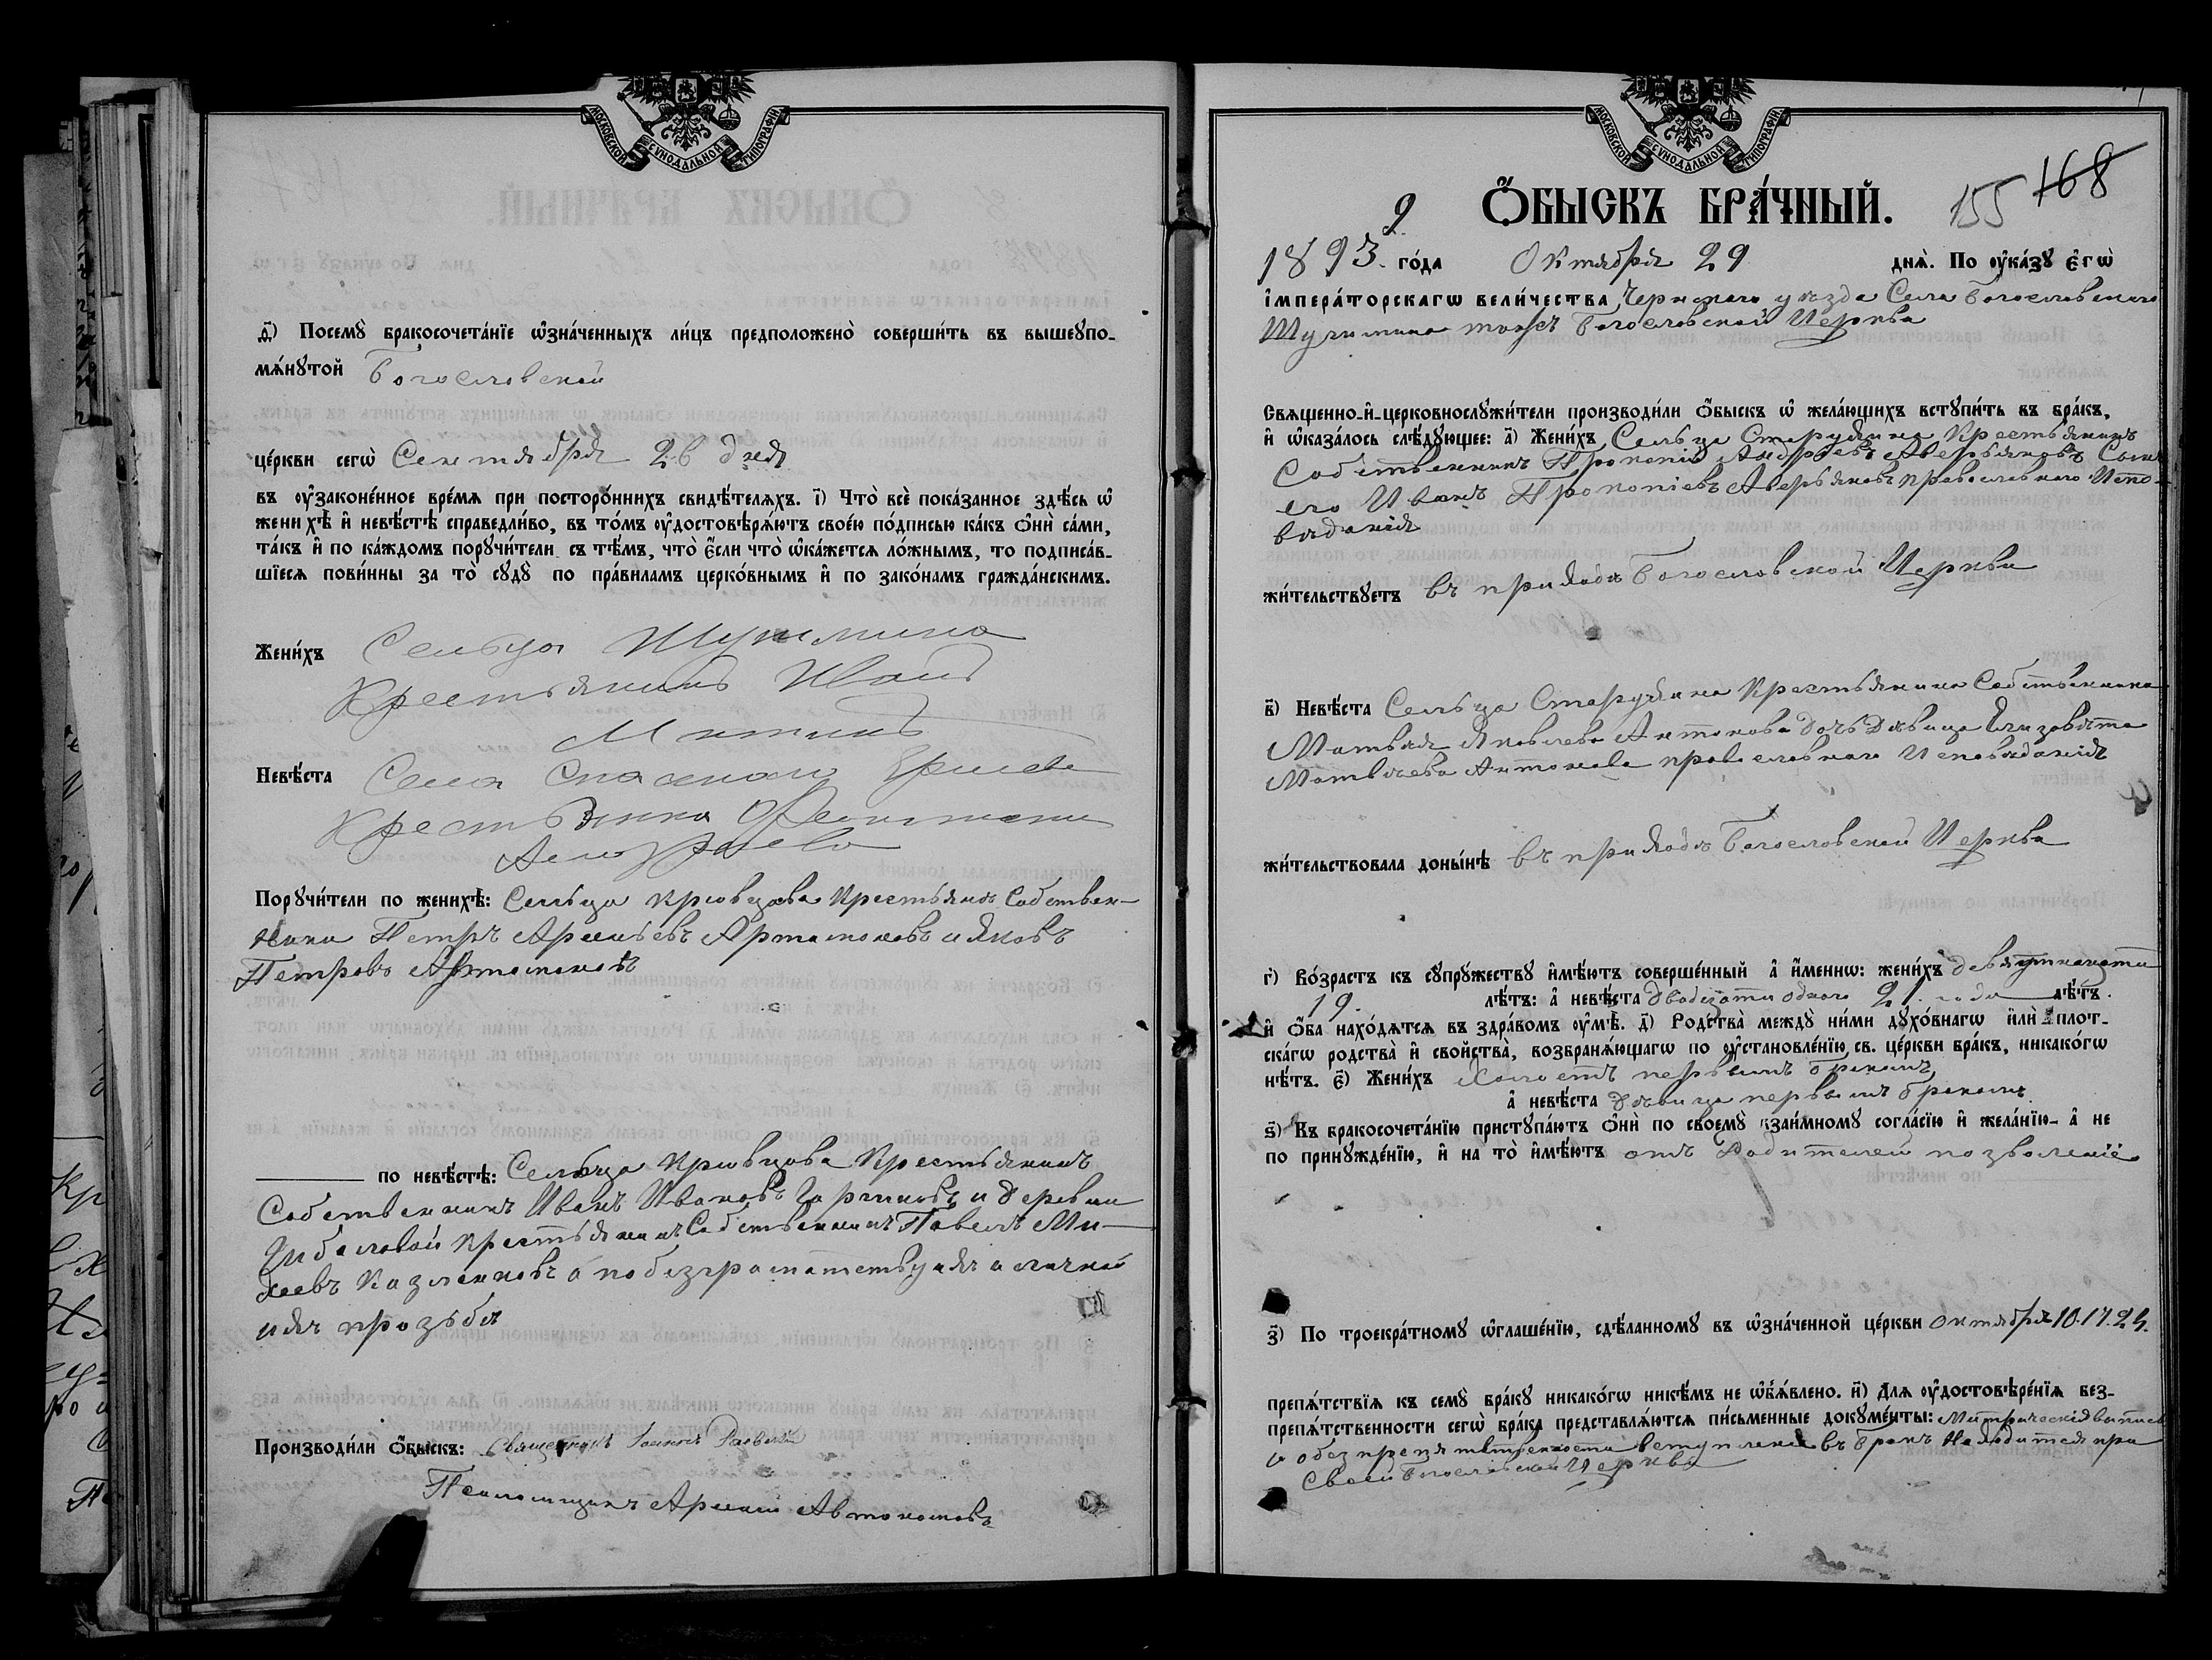 МОСКОВСКОЙ СѴНОДАЛЬНОЙ ТИПОГРАФІИ
д҃і) Посемꙋ̀ бракосочета́нїе ѡ҆зна́ченныхъ ли́цъ предположено̀ соверши́ть въ вышеꙋпо-
мѧ́нꙋтой Богословской
це́ркви сегѡ̀ Сентября 26 дня
въ ᲂу҆законе́нное вре́мѧ при посторо́ннихъ свидѣ́телѧхъ. і҃) Что̀ всѐ пока́занное здѣ́сь ѡ҆
женихѣ̀ и҆ невѣ́стѣ справедли́во, въ то́мъ ᲂу҆достовѣрѧ́ютъ свое́ю по́дписью ка́къ ѻ҆нѝ са́ми,
та́къ и҆ по ка́ждомъ порꙋчи́тели съ тѣ́мъ, что̀ є҆́сли что̀ ѡ҆ка́жетсѧ ло́жнымъ, то подписа́в-
шїесѧ пови́нны за то̀ сꙋдꙋ̀ по пра́виламъ церко́внымъ и҆ по зако́намъ гражда́нскимъ.
Жени́хъ Сельца
Крестьянинъ Иванъ
Невѣ́ста Села Спаскаго
Крестьянка
Порꙋчи́тели по женихѣ̀: Сельца Кривцова Крестьяне Собствен-
ники Петръ Арсеньевъ Артамоновъ и Яковъ
Петровъ Артамоновъ
по невѣ́стѣ: Сельца Кривцова Крестьянинъ
Собственникъ Иванъ Ивановъ и Деревни
Крестьянинъ Собственникъ Павелъ Ми-
хеевъ а по безграматству ихъ и личной
ихъ прозьбѣ
Производи́ли ѻ҆́быскъ: Священникъ Іоаннъ
Псаломщикъ Арсеній Автономовъ
МОСКОВСКОЙ СѴНОДАЛЬНОЙ ТИПОГРАФІИ
Ѻ҆́БЫСКЪ БРА́ЧНЫЙ. 155 168
9
1893 го́да Октября 29 днѧ̀. По ᲂу҆ка́зꙋ є҆гѡ̀
і҆мпера́торскагѡ вели́чества Чернскаго уѣзда Села Богословскаго
тожъ Богословской Церкви
Свѧщенно-и҆-церковнослꙋжи́тели производи́ли ѻ҆́быскъ ѡ҆ жела́ющихъ встꙋпи́ть въ бра́къ,
и҆ ѡ҆каза́лось слѣ́дꙋющее: а҃) Жени́хъ Сельца Старухина Крестьянинъ
Собственникъ Прокопій Андреевъ Аверьяновъ Сынъ
его Иванъ Прокопіевъ Аверьяновъ православнаго Испо-
вѣданія
жи́тельствꙋетъ въ приходѣ Богословской Церкви
в҃) Невѣ́ста Сельца Старухина Крестьянина Собственника
Матвѣя Яковлева Антонова дочь Дѣвица Елизавѣта
Матвѣева Антонова православнаго Исповѣданія
жи́тельствовала доны́нѣ въ приходѣ Богословской Церкви
г҃) Во́зрастъ къ сꙋпрꙋ́жествꙋ и҆мѣ́ютъ соверше́нный а҆ и҆́меннѡ: жени́хъ девятнацати
19. лѣ́тъ: а҆ невѣ́ста двадцати одного 21. года лѣ́тъ.
и҆ ѻ҆́ба нахо́дѧтсѧ въ здра́вомъ ᲂу҆мѣ̀. д҃) Родства̀ междꙋ̀ ни́ми дꙋхо́внагѡ и҆лѝ плот-
ска́гѡ родства̀ и҆ свойства̀, возбранѧ́ющагѡ по ᲂу҆становле́нїю св. це́ркви бра́къ, никако́гѡ
нѣ́тъ. є҃) Жени́хъ Холостъ первымъ бракомъ
а҆ невѣ́ста Дѣвица первымъ бракомъ
ѕ҃) Къ бракосочета́нїю пристꙋпа́ютъ ѻ҆нѝ по своемꙋ̀ взаи́мномꙋ согла́сїю и҆ жела́нїю- а҆ не
по принꙋжде́нїю, и҆ на то̀ и҆мѣ́ютъ отъ Родителей позволеніе
з҃) По троекра́тномꙋ ѡ҆глаше́нїю, сдѣ́ланномꙋ въ ѡ҆зна́ченной це́ркви октября 10. 17. 24.
препѧ́тствїѧ къ семꙋ̀ бра́кꙋ никако́гѡ никѣ́мъ не ѡ҆б̾ѧ́влено. и҃) Длѧ ᲂу҆достовѣре́нїѧ без-
препѧ́тственности сегѡ̀ бра́ка представлѧ́ютсѧ пи́сьменные докꙋме́нты: Митрическія выписи
о безпрепятственности вступленія въ бракъ находится при
Своей Богословской Церкви